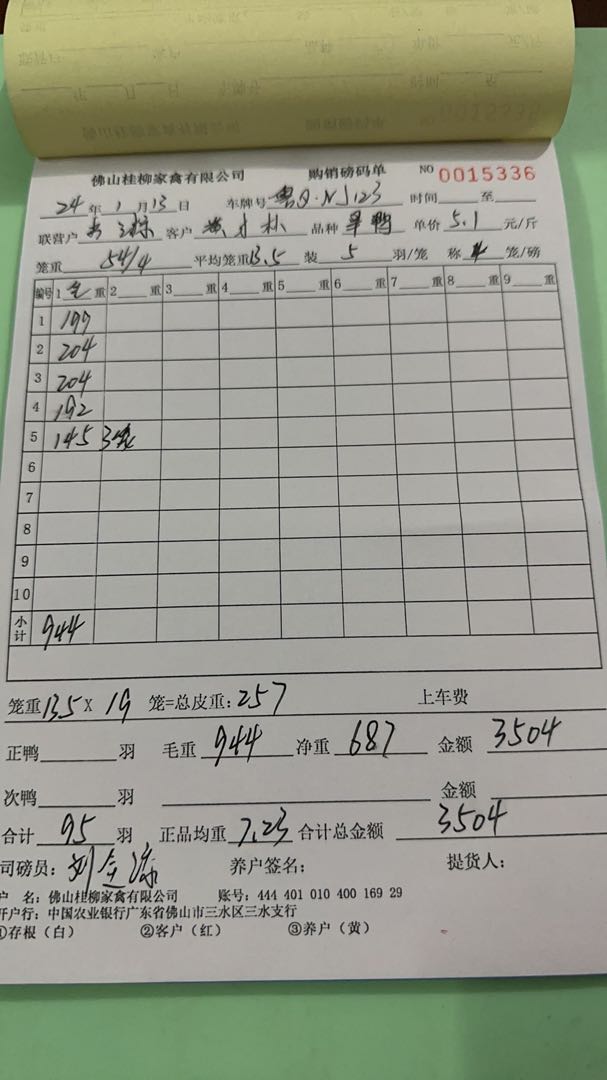 佛山桂柳家禽有限公司 购销磅码单 NO 0015336
24年1月13日 车牌号 粤Q·NJ123 时间 至
联营户 客户 品种 旱鸭 单价 5.1 元/斤
笼重 54/4 平均笼重 13.5 装 5 羽/笼 称 4 笼/磅
编号 1 毛 重 2 重 3 重 4 重 5 重 6 重 7 重 8 重 9 重
1 199
2 204
3 204
4 192
5 145 3笼
6
7
8
9
10
小计 944
笼重 13.5 X 19 笼=总皮重: 257 上车费
正鸭 羽 毛重 944 净重 687 金额 3504
次鸭 羽 金额
合计 95 羽 正品均重 7.23 合计总金额 3504
司磅员: 养户签名: 提货人:
户 名: 佛山桂柳家禽有限公司 账号: 444 401 010 400 169 29
开户行: 中国农业银行广东省佛山市三水区三水支行
①存根（白） ②客户（红） ③养户（黄）